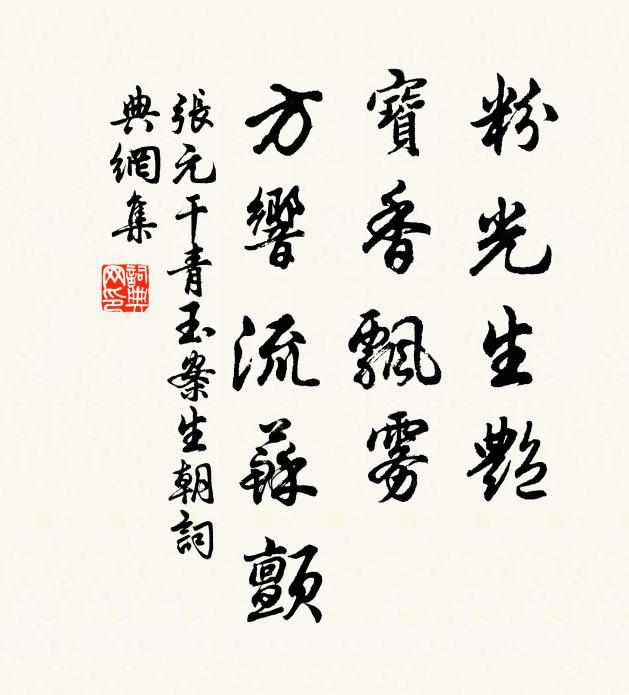 粉光生艷
寶香飄雾
方響流蘇顫
張元干青玉案生朝詞
典網集
詞典网印